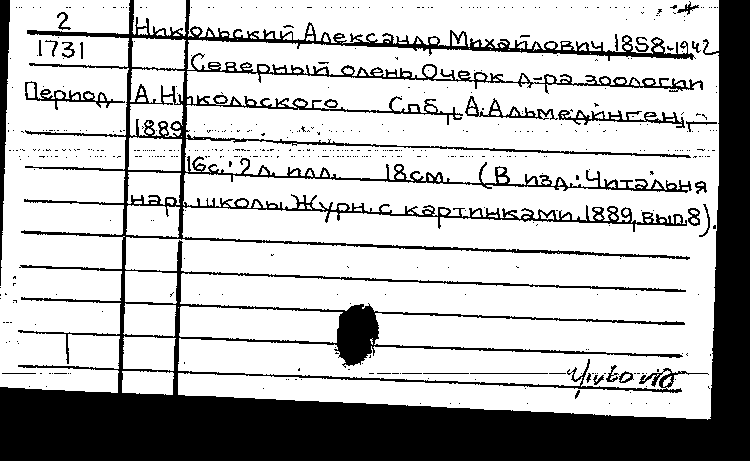 2
Никольский, Александр Михайлович, 1858-1942
1731
Северный олень. Очерк д-ра зоологии
Период. А. Никольского. Спб., А. Альмединген,
1889.
16с.; 2 л. илл. 18см. (В изд.: Читальня
нар. школы. Журн. с картинками. 1889, вып. 8).